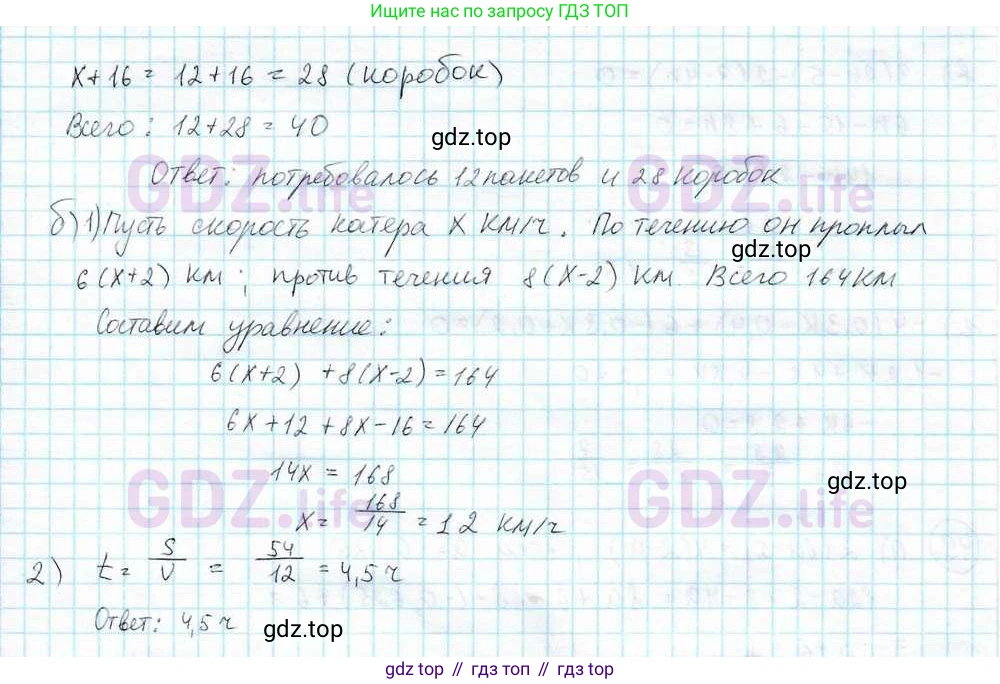 Ищите ответы по запросу ГДЗ ТОП
x+16 = 12+16 = 28 (коробок)
Всего: 12+28 = 40
gdz.top
GDZ.life GDZ.life
Ответ: потребовалось 12 пакетов и 28 коробок
б) 1) Пусть скорость катера x км/ч. По течению он проплыл
gdz.top
6(x+2) км; против течения 8(x-2) км. Всего 164 км
Составим уравнение:
6(x+2) + 8(x-2) = 164
6x+12+8x-16 = 164
14x = 168
gdz.top
GDZ.life GDZ.life
x = 168/14 = 12 км/ч
2) t = S/V = 54/12 = 4,5 ч
Ответ: 4,5 ч
gdz.top
gdz top // гдз топ // gdz.top